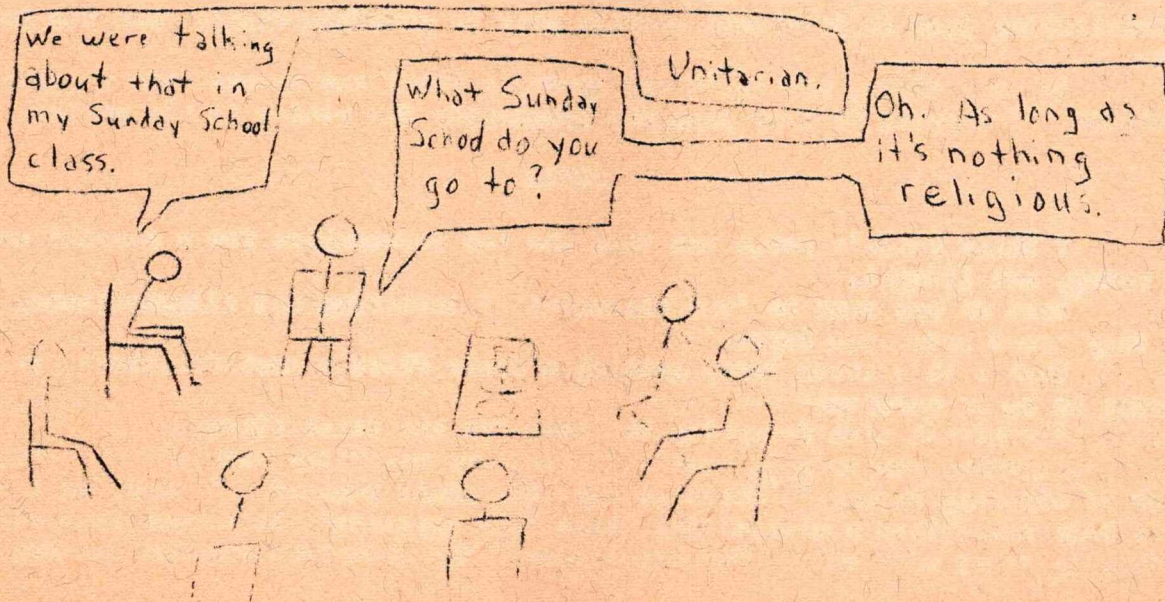 We were talking
about that in
my Sunday School
class.
What Sunday
School do you
go to?
Unitarian.
Oh. As long as
it's nothing
religious.